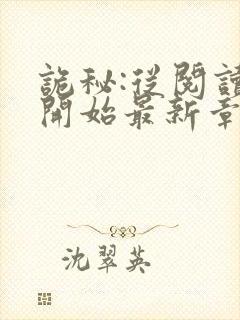 詭秘:從閱讀
開始最新章
沈翠英